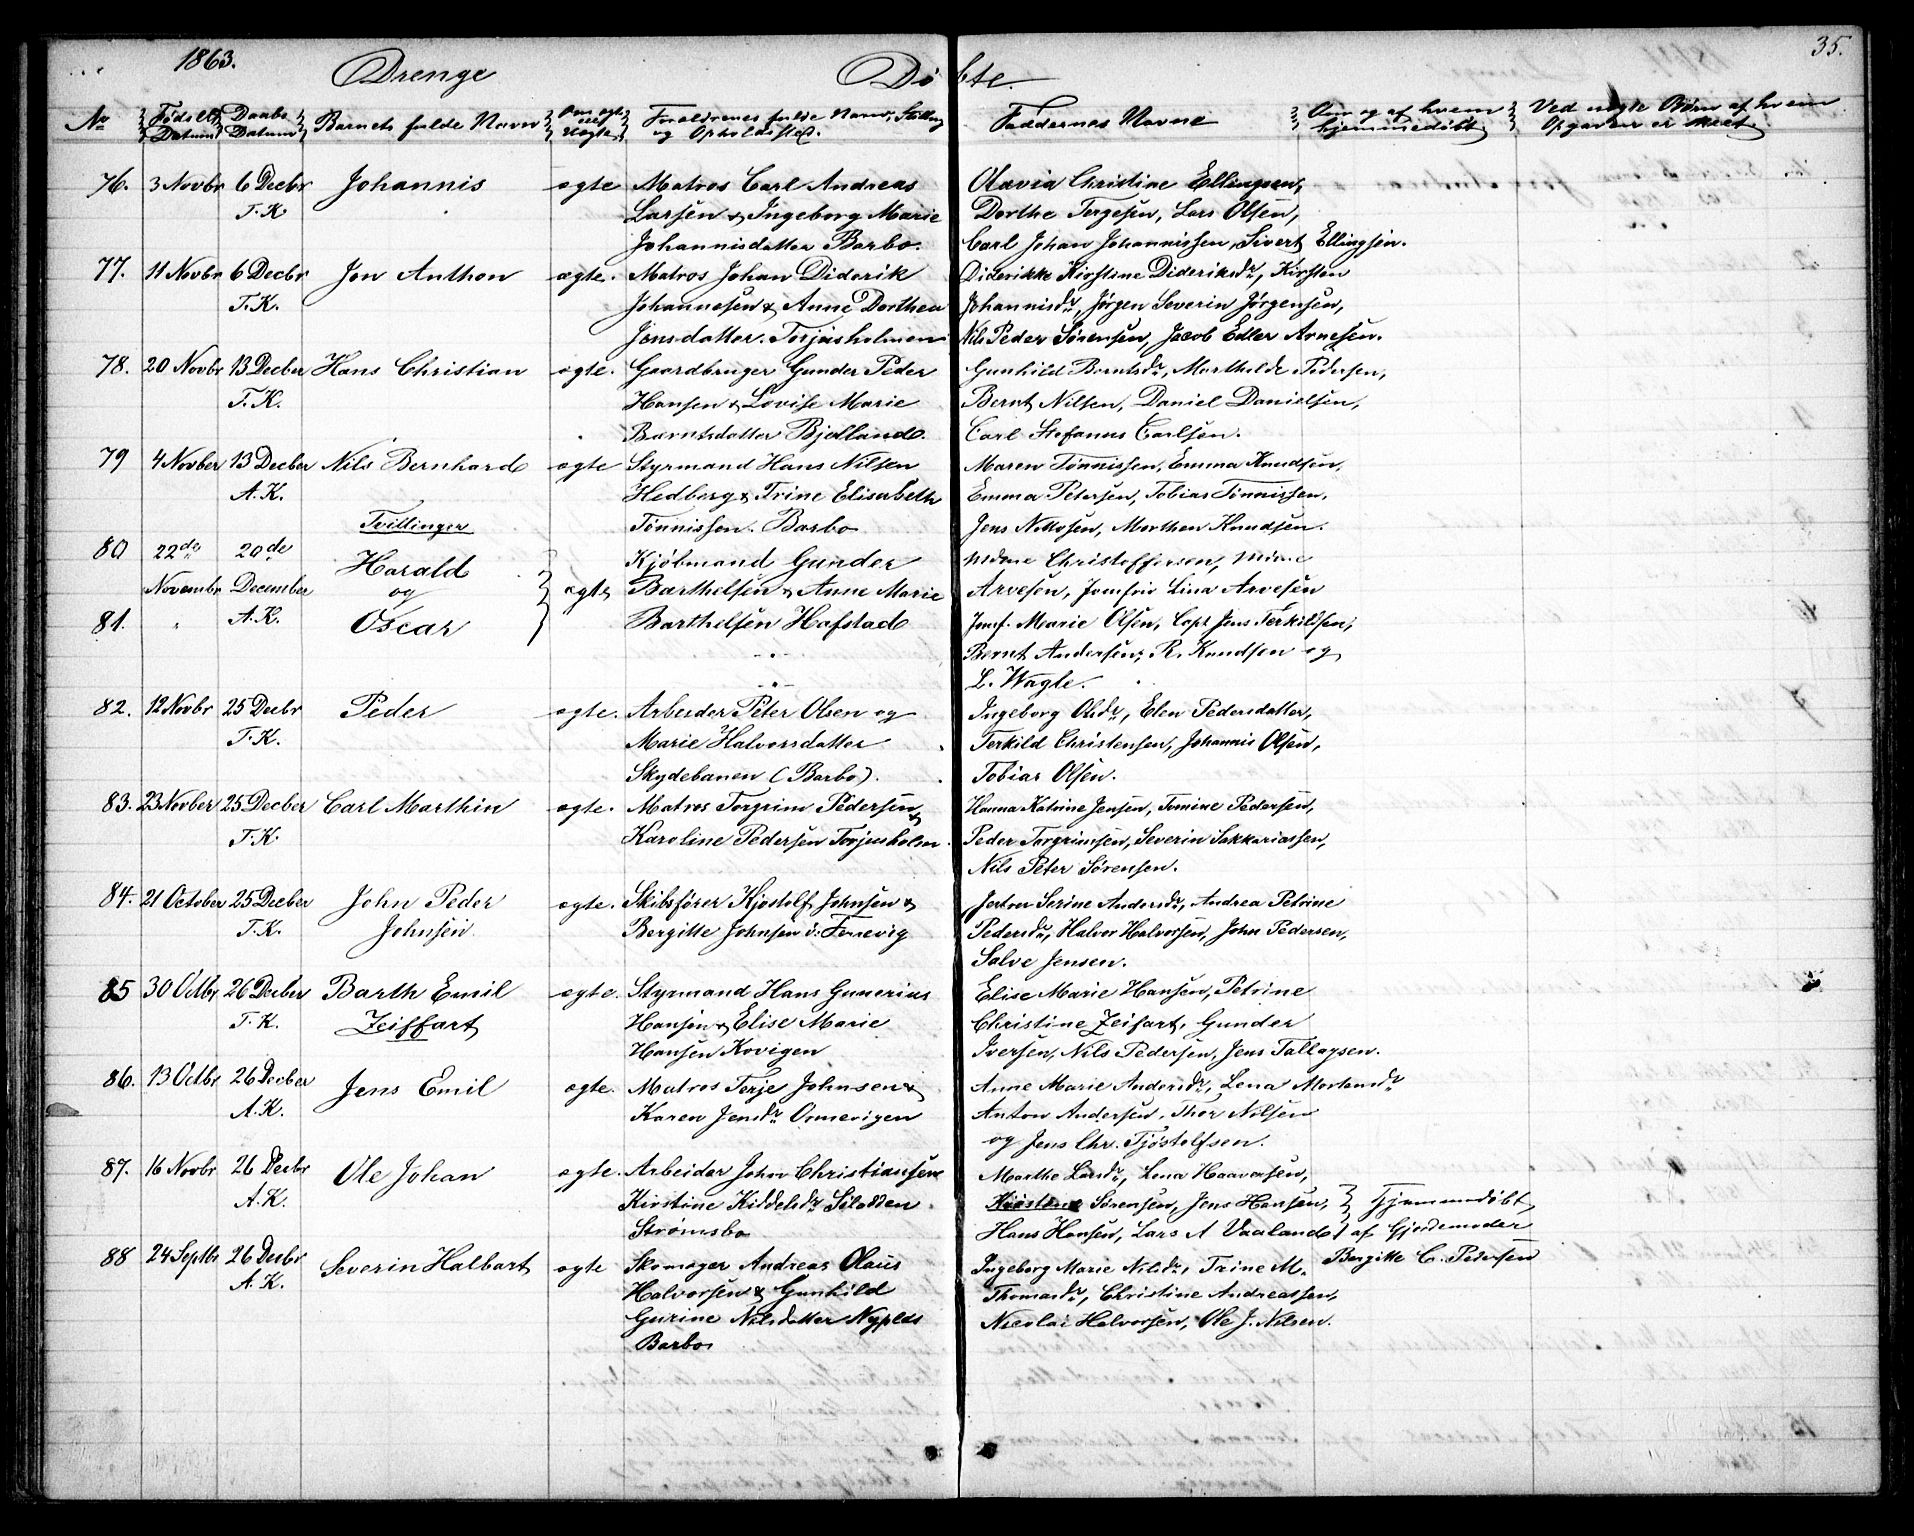 1863. Drenge Døbte. 35.
No Fødsels Datum Daabs Datum Barnets fulde Navn Om ægte eller Uægte Forældrenes fulde Navn, Stilling og Opholdssted. Faddernes Navne Om og af hvem hjemmedøbt Ved uægte Børn af hvem Opgaven er skeet
76. 3 Novbr 6 Decbr Johannis ægte Matros Carl Andreas Olavia Christine Ellingsen,
T.K. Larsen & Ingeborg Marie Dorthe Tergesen, Lars Olsen,
Johannisdatter Barbo. Carl Johan Johannissen, Sivert Ellingsen.
77. 11 Novbr 6 Decbr Jon Anthon ægte. Matros Johan Diderik Diderikke Kirstine Dideriksdr, Kirsten
T.K. Johannesen & Anne Dorthea Johannisdr, Jørgen Severin Jørgensen,
Jensdatter. Torjusholmen Nils Peder Sørensen, Jacob Edler Arnesen.
78. 20 Novbr 13 Decber Hans Christian ægte. Gaardbruger Gunder Peder Gunhild Berntsdr, Marthilde Pedersen,
T.K. Hansen & Lovise Marie Bernt Nilsen, Daniel Danielsen,
Berntsdatter Bjelland. Carl Stefanus Carlsen.
79 4 Novber 13 Decber Nils Bernhard ægte Styrmand Hans Nilsen Maren Tønnissen, Emma Knudsen,
A.K. Hedberg & Trine Elisabeth Emma Petersen, Tobias Tønnissen,
Tvillinger Tønnissen. Barbo Jens Nilsen, Morthen Knudsen.
80 22de 20de Harald Kjøbmand Gunder Mdme Christoffersen, Mdme
Novembr December og ægte Barthelsen & Anne Marie Arvesen, Jomfru Lina Arvesen
81. " A.K. Oscar Barthelsen Hafstad Jomf. Marie Olsen, Capt Jens Terkildsen,
Bernt Andersen, R. Knudsen og
L. Wagle.
82. 12 Novbr 25 Decbr Peder ægte. Arbeider Peter Olsen og Ingeborg Olsdr, Elen Pedersdatter,
T.K. Marie Halvorsdatter Terkild Christensen, Johannis Olsen,
Skydebanen (Barbo). Tobias Olsen.
83. 23 Novber 25 Decber Carl Marthin ægte. Matros Torgrim Pedersen & Hanna Katrine Jensen, Tomine Pedersen,
T.K. Karoline Pedersen Torjusholm. Peder Torgrimsen, Severin Sakkariassen,
Nils Peter Sørensen.
84. 21 October 25 Decber John Peder ægte. Skibsfører Kjøstolf Johnsen & Serine Andersdr, Andrea Petrine
T.K. Johnsen Bergitte Johnsen Pedersdr, Halvor Halvorsen, John Pedersen,
Salve Jensen.
85 30 Octbr 26 Decber Barth Emil ægte. Styrmand Hans Gunerius Elise Marie Hansen, Petrine
T.K. Zeiffart Hansen & Elise Marie Christine Zeifart, Gunder
Hansen Kovigen Iversen, Nils Pedersen, Jens Tallagsen.
86. 13 Octbr 26 Decber Jens Emil ægte. Matros Terje Johnsen & Anne Marie Andersdr, Lena Mortensdr
A.K. Karen Jensdr Omevigen Anton Andersen, Thor Nilsen
og Jens Chr. Tjøstolfsen.
87. 16 Novbr 26 Decbr Ole Johan ægte. Arbeider John Christiansen Marthe Larsdr, Lena Haavorsen,
A.K. Kirstine Kiddelsdr Kirstine Sørensen, Jens Hansen, Hjemmedøbt
Strømsbo Hans Hansen, Lars A Vaaland af Gjordemoder
88 24 Septbr 26 Decbr Severin Halbart ægte Skomager Andreas Olaus Ingeborg Marie Nilsdr, Trine M. Bergitte C. Pedersen
A.K. Halvorsen & Gunhild Thomasdr, Christine Andreassen,
Gurine Nilsdatter Nyplds Nicolai Halvorsen, Ole J. Nilsen.
Barbo